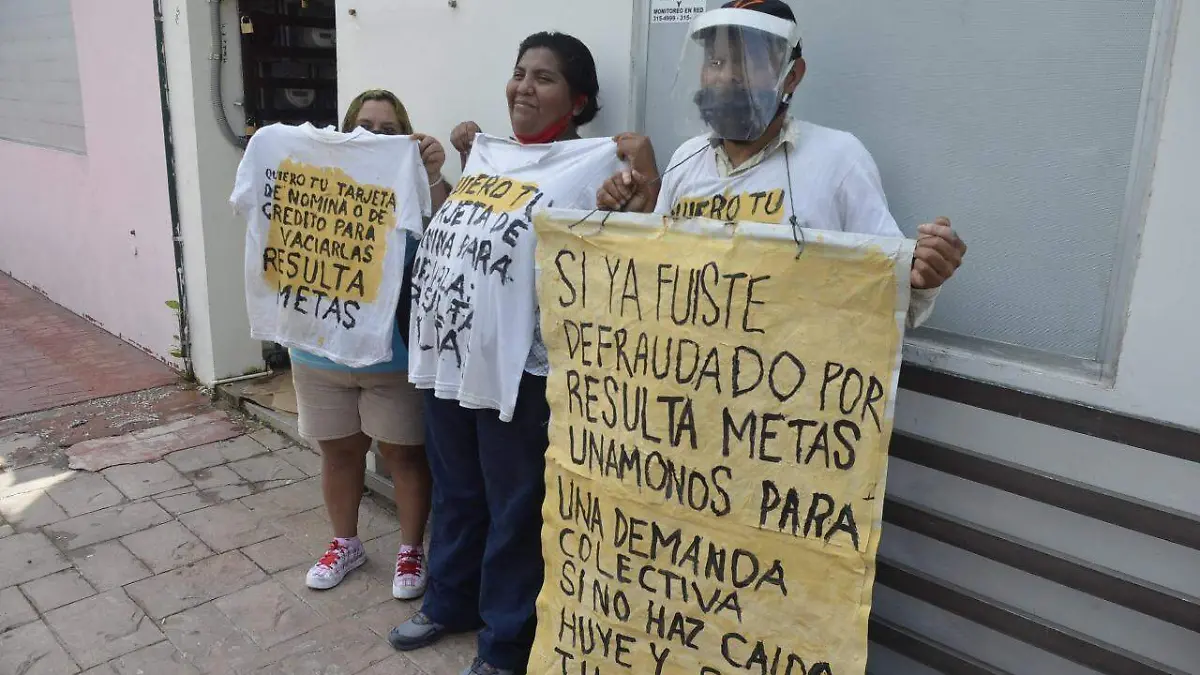 Y
MONITOREO EN RED
QUIERO TU TARJETA
DE NOMINA O DE
CREDITO PARA
VACIARLAS
RESULTA
METAS
QUIERO TU
PARA
RESULTA
QUIERO TU
SI YA FUISTE
DEFRAUDADO POR
RESULTA METAS
UNAMONOS PARA
UNA DEMANDA
COLECTIVA
SI NO HAZ CAIDO
HUYE Y